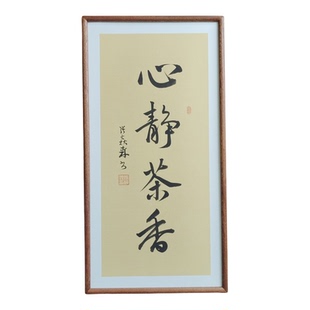 心静茶香